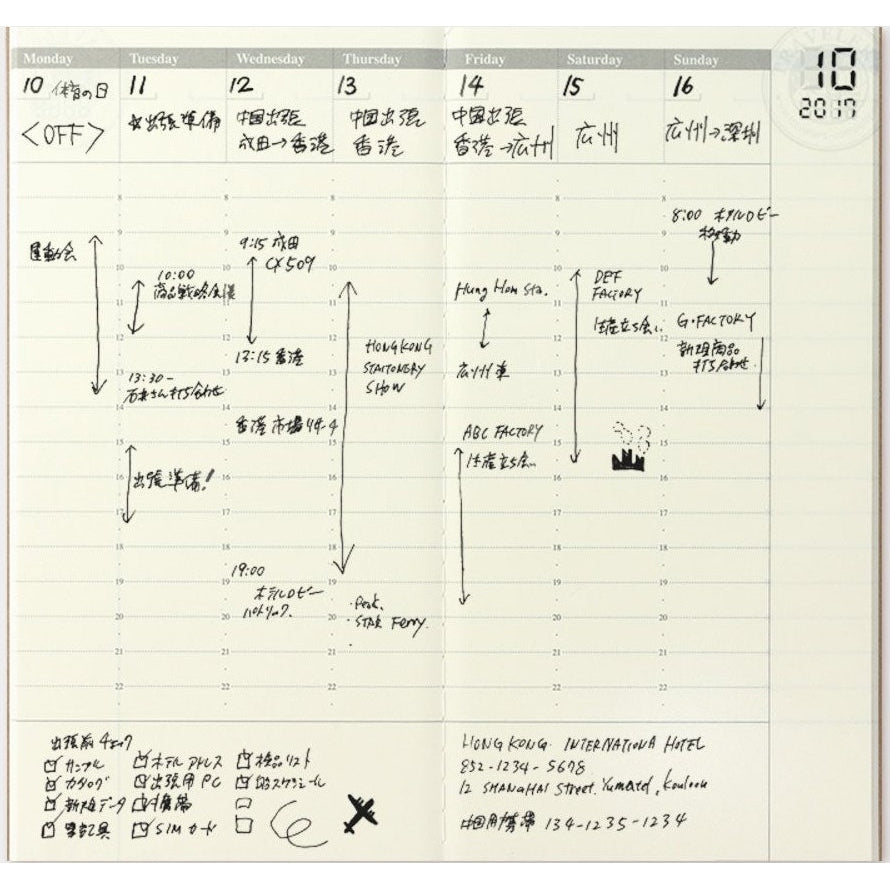 Monday Tuesday Wednesday Thursday Friday Saturday Sunday
10 体育の日 11 12 13 14 15 16
10
2017
<OFF>
出張準備
中国出張
成田→香港
中国出張
香港
中国出張
香港→広州
広州
広州→深圳
運動会
10:00
商品戦略会議
13:30-
打ち合わせ
出張準備!
9:15 成田
CX509
13:15 香港
香港市場リサーチ
19:00
ホテルロビー
パトリック
HONGKONG
STAITONERY
SHOW
・Peak.
・STAR Ferry.
Hung Hom Sta.
広州東
ABC FACTORY
生産立ち会い
DEF
FACTORY
生産立ち会い
8:00 ホテルロビー
移動
G・FACTORY
新規商品
打ち合わせ
8
9
10
11
12
13
14
15
16
17
18
19
20
21
22
出張前チェック
サンプル
カタログ
新規データ
筆記具
ホテルアドレス
出張用PC
携帯
SIMカード
検品リスト
スケジュール
HONG KONG INTERNATIONA HOTEL
852-1234-5678
12 SHANGHAI Street. Yumatei, Kouloon
中国用携帯 134-1235-1234